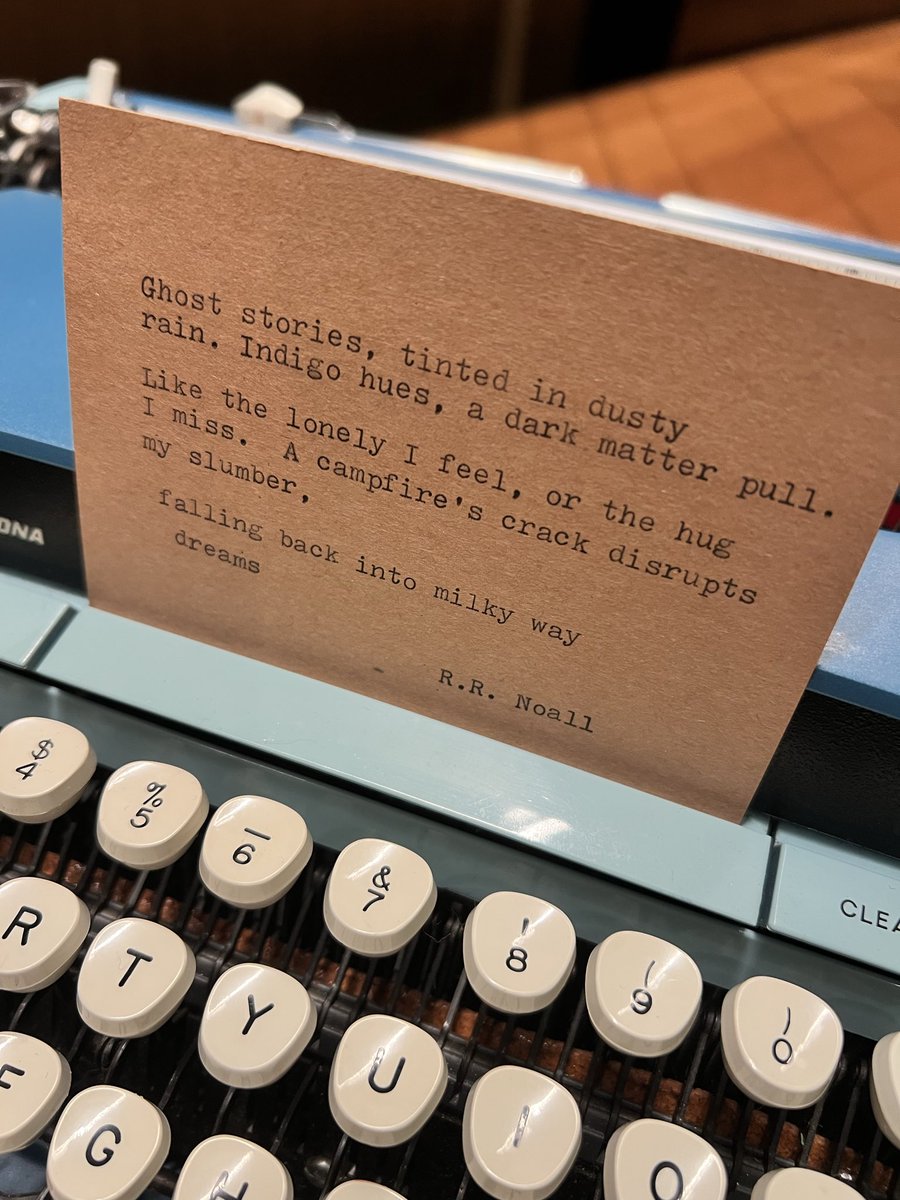 Ghost stories, tinted in dusty
rain. Indigo hues, a dark matter pull.
Like the lonely I feel, or the hug
I miss.  A campfire's crack disrupts
my slumber,
falling back into milky way
dreams
R.R. Noall
ONA
CLEA
$
4
%
5
—
6
&
7
'
8
(
9
)
0
R
T
Y
U
I
O
F
G
H